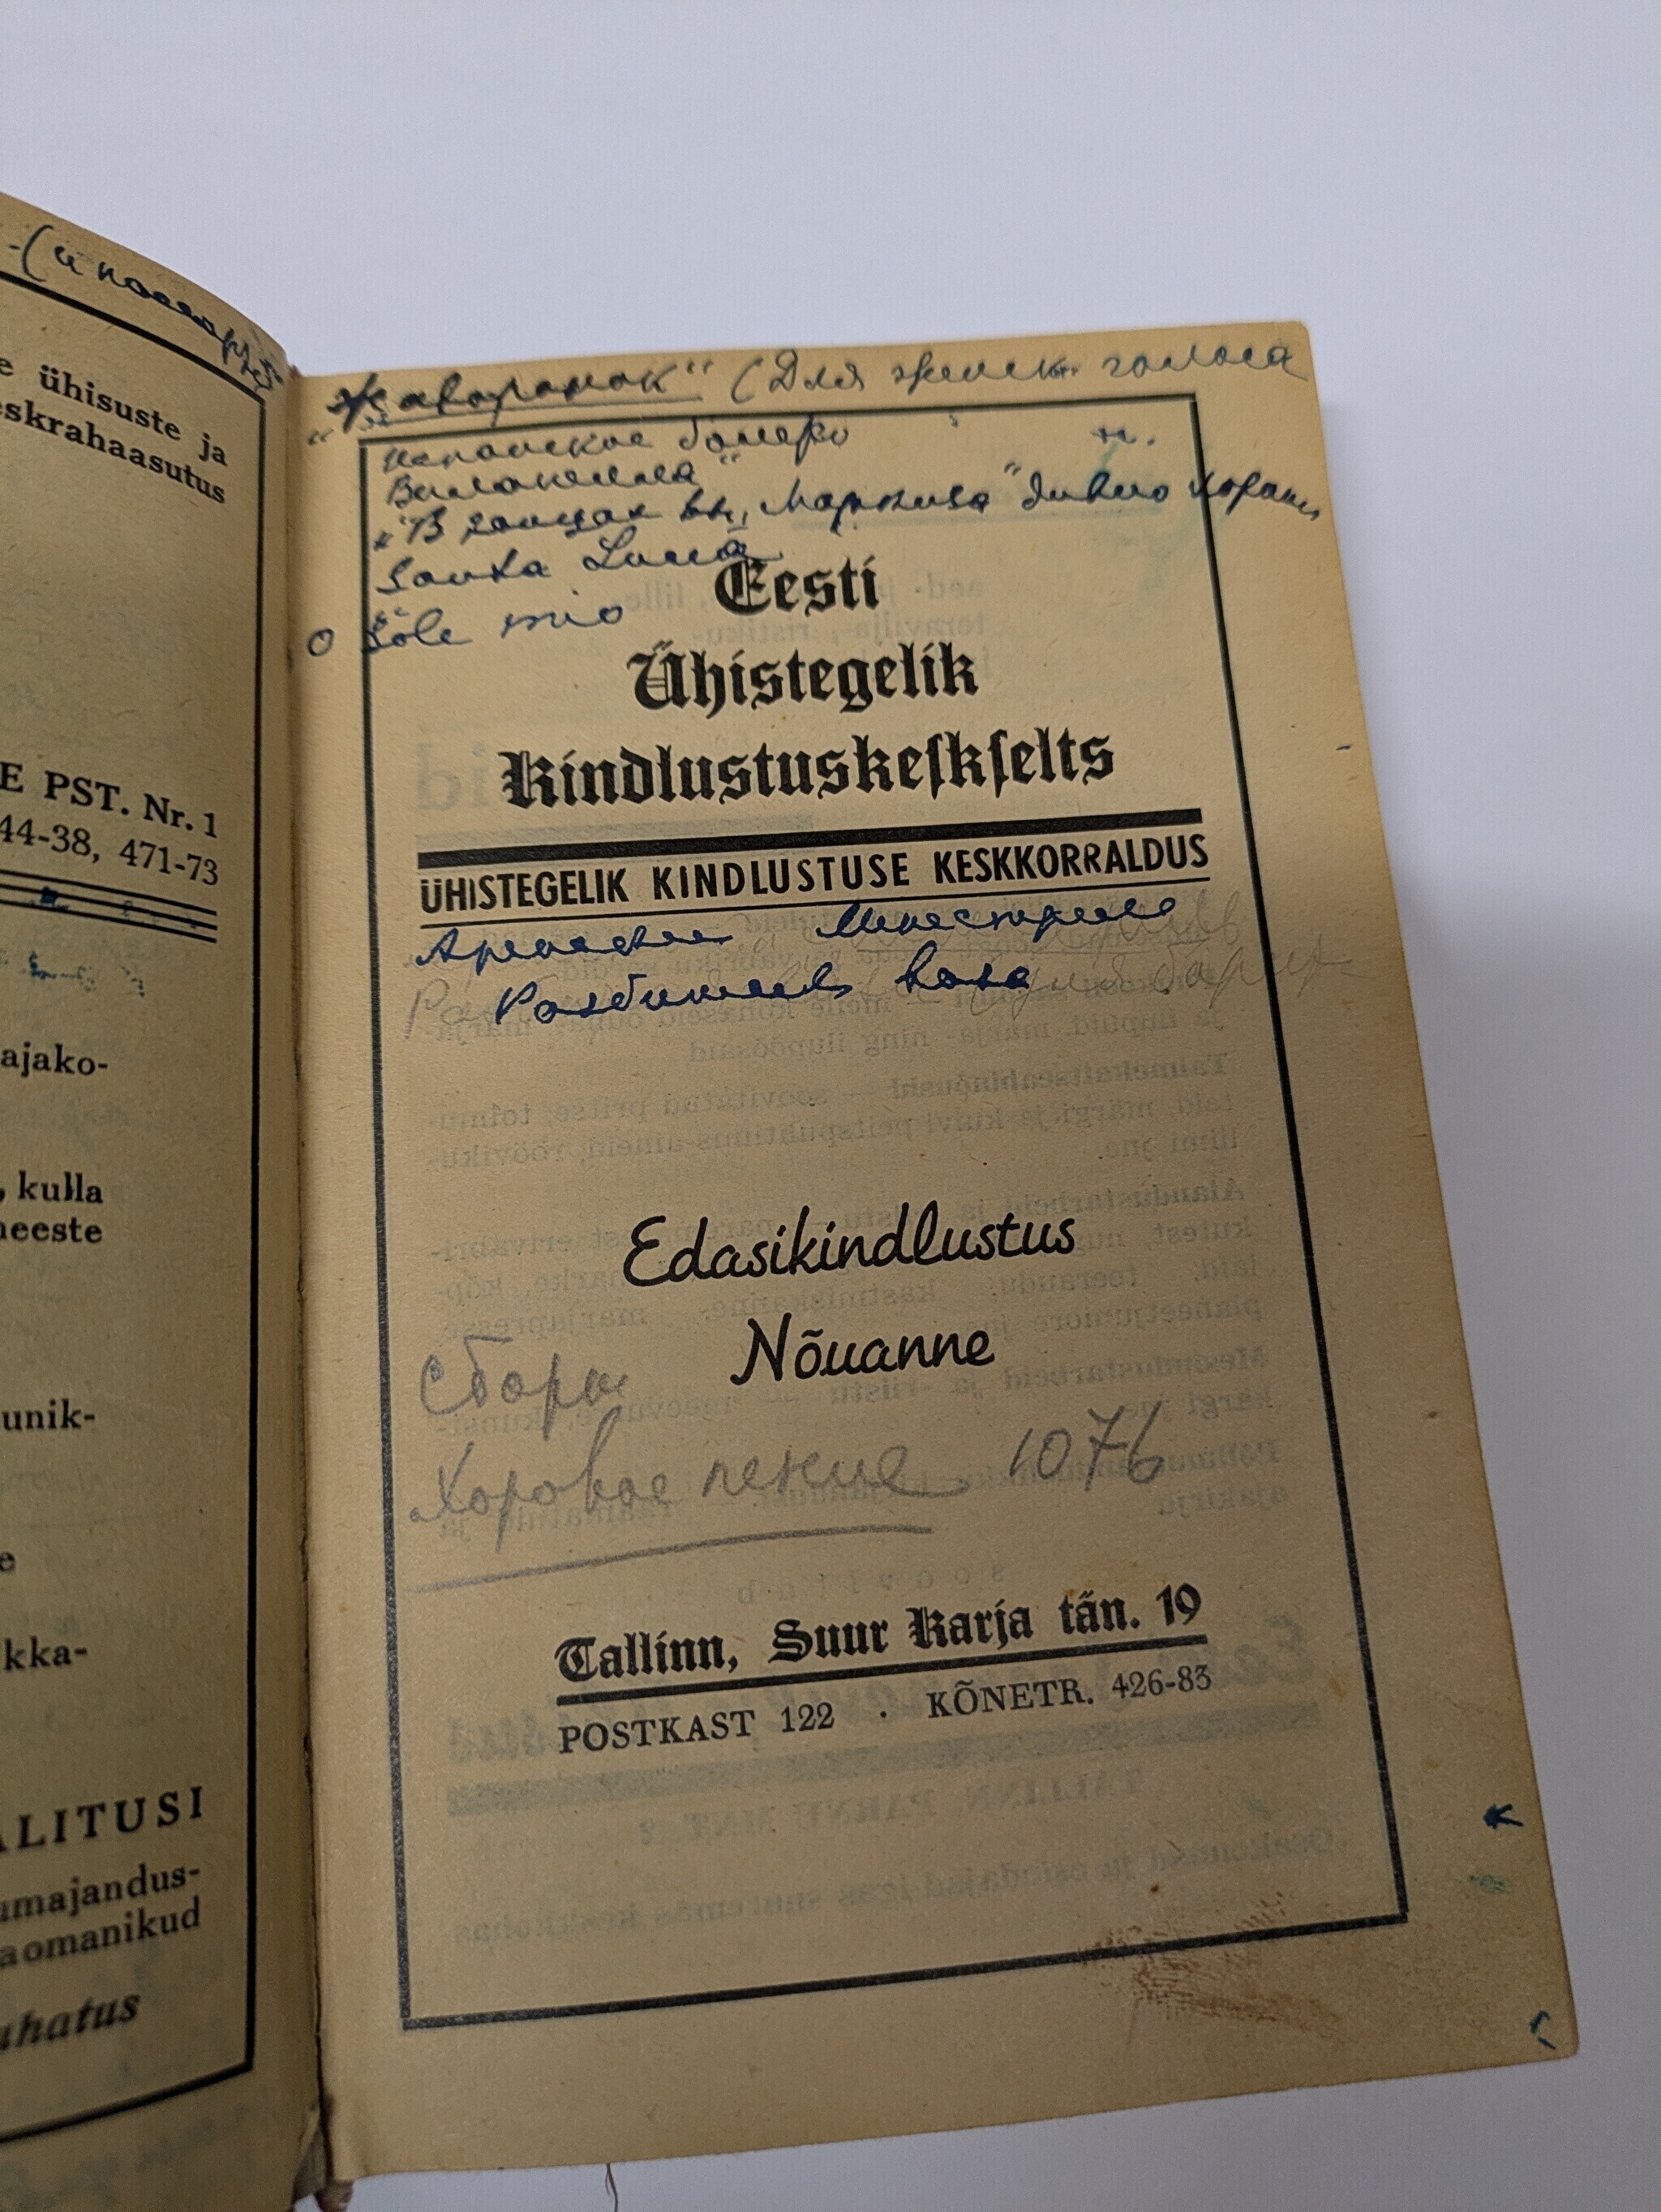 e ühisuste ja
eskrahaasutus
E PST. Nr. 1
44-38, 471-73
ajako-
, kulla
neeste
unik-
e
kka-
ALITUSI
umajandus-
aomanikud
uhatus
„Жаворонок“ (Для женск. голоса
Испанское болеро н.
Вилланелла“
„В
Санта Lucia
O Sole mio
Eesti
Ühistegelik
Kindlustuskeſkſelts
ÜHISTEGELIK KINDLUSTUSE KESKKORRALDUS
Разбитая ваза
Edasikindlustus
Nõuanne
Сборн
Хоровое пение 1076
Tallinn, Suur Karja tän. 19
POSTKAST 122 · KÕNETR. 426-83